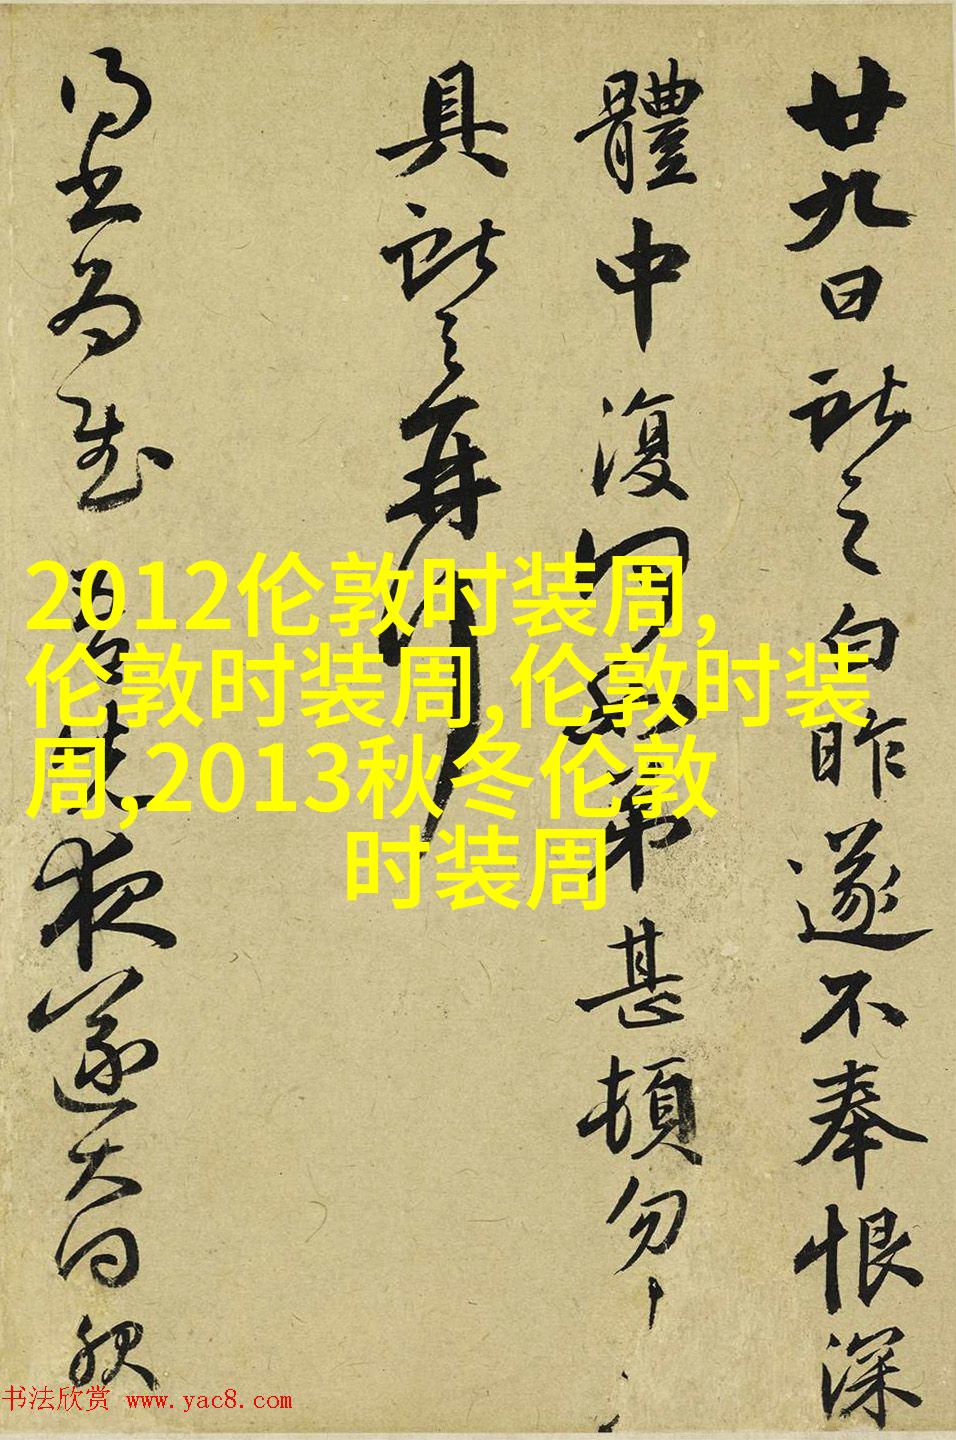 廿九日獻之白昨遂不奉恨深
體中復何如弟甚頓勿勿
具獻之再拜
得書為慰吾
夜遂大
2012伦敦时装周,
伦敦时装周,伦敦时装
周,2013秋冬伦敦
时装周
书法欣赏 www.yac8.com